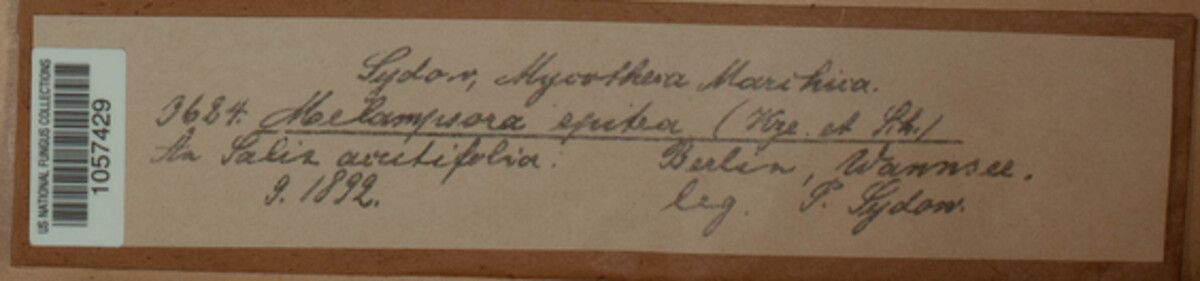 US NATIONAL FUNGUS COLLECTIONS
1057429
Sydow, Mycotheca Marchica.
3624. Melampsora epitea (Kze. et Sch.)
An Salix acutifolia. Berlin, Wannsee.
9. 1892. leg. P. Sydow.